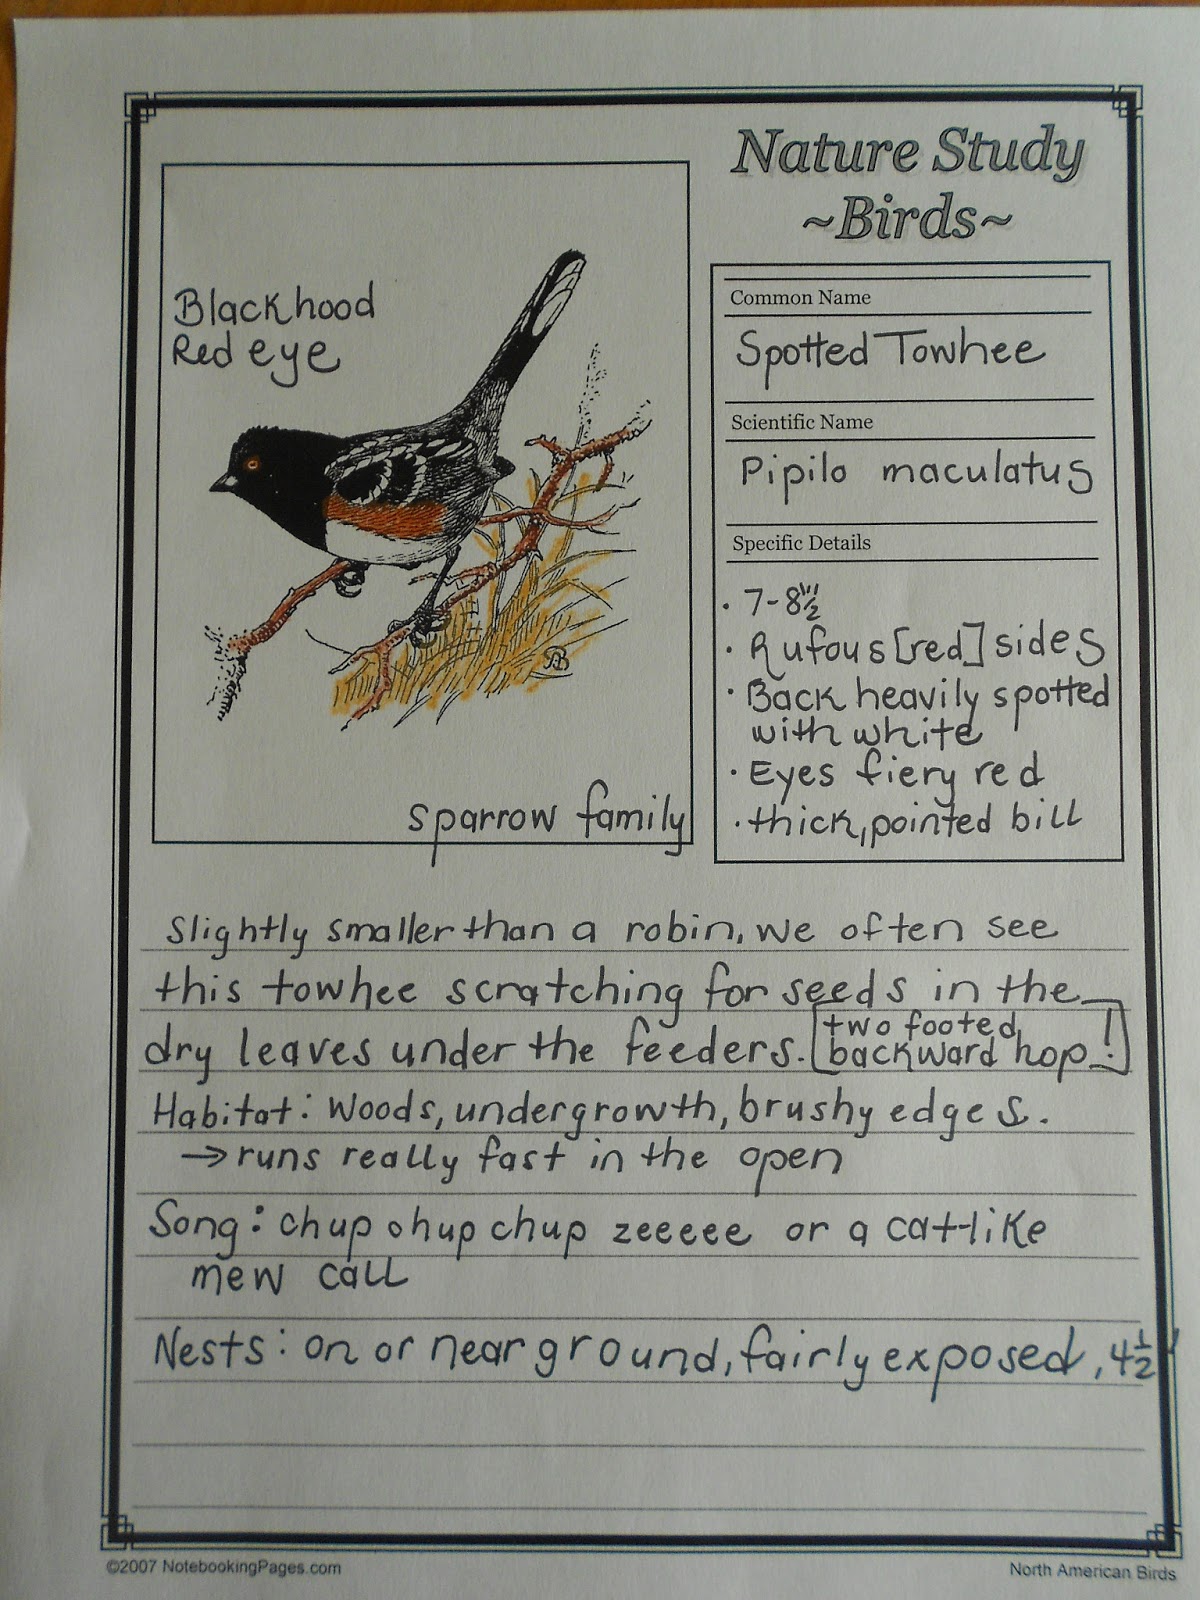 Nature Study
~Birds~
Blackhood
Red eye
sparrow family
Common Name
Spotted Towhee
Scientific Name
Pipilo maculatus
Specific Details
• 7-8½"
• Rufous [red] sides
• Back heavily spotted
with white
• Eyes fiery red
• thick, pointed bill
Slightly smaller than a robin, we often see
this towhee scratching for seeds in the
dry leaves under the feeders. [two footed, backward hop!]
Habitat: Woods, undergrowth, brushy edges.
→ runs really fast in the open
Song: chup chup chup zeeeee or a cat-like
mew call
Nests: on or near ground, fairly exposed, 4½'
©2007 NotebookingPages.com
North American Birds